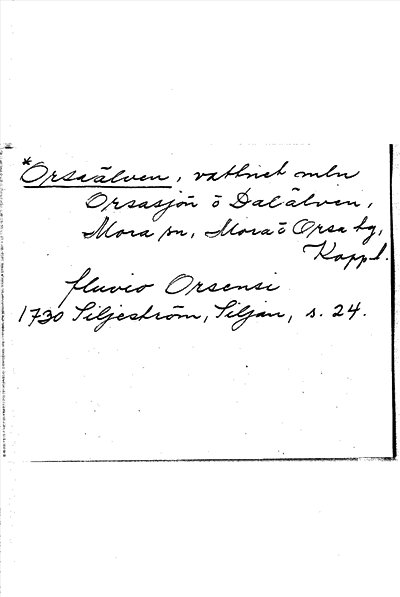 *Orsaälven, vattnet mln
Orsasjön o Dalälven,
Mora sn, Mora o Orsa tg,
Kopp l.
fluvio Orsensi
1730 Siljeström, Siljan, s. 24.